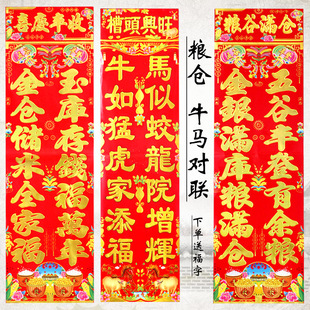 喜慶丰收
玉库存錢福萬年
金仓储米全家福
槽頭興旺
馬似蛟龍院增輝
牛如猛虎家添福
粮仓 牛马对联
下单送福字
粮谷满仓
五谷丰登有余粮
金銀满库粮满仓